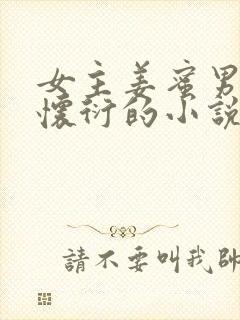 女主姜蜜男
懷衍的小說
請不要叫我帥